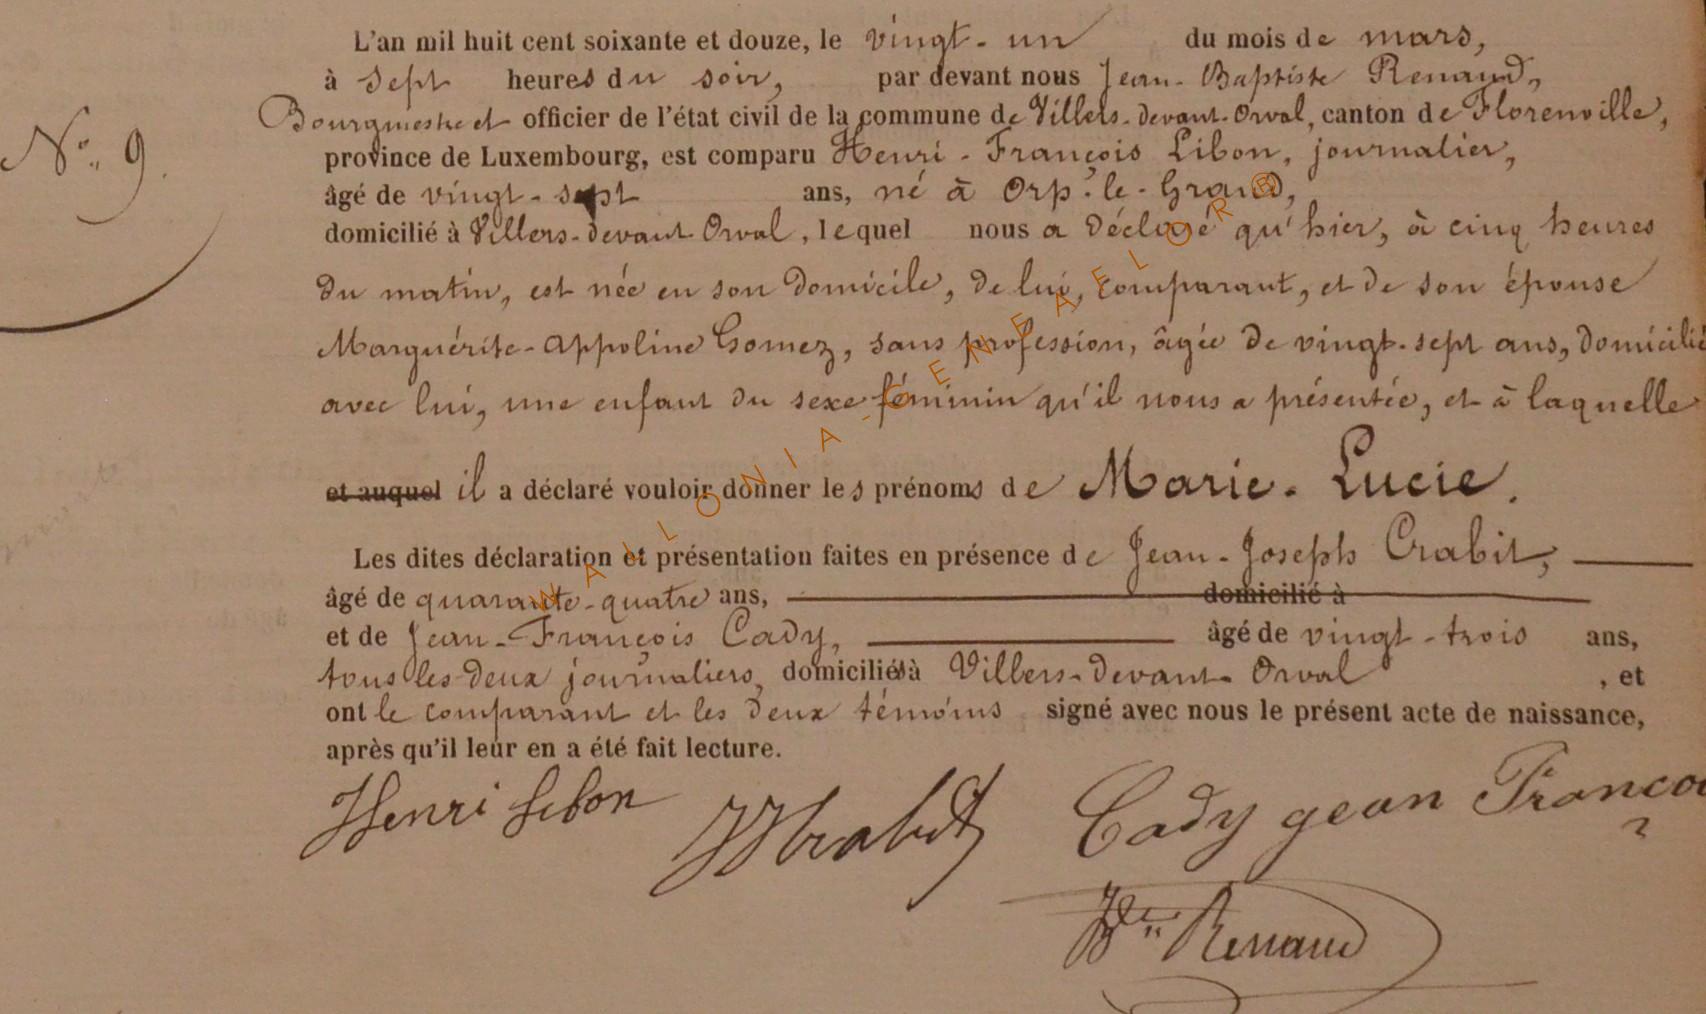 L'an mil huit cent soixante et douze, le vingt-un du mois de mars,
à sept heures du soir, par devant nous Jean-Baptiste Renaud,
Bourgmestre et officier de l'état civil de la commune de Villers-devant-Orval, canton de Florenville,
N°. 9.
province de Luxembourg, est comparu Henri-François Libon, journalier,
âgé de vingt-sept ans, né à Orp-le-Grand,
domicilié à Villers-devant Orval, lequel nous a déclaré qu'hier, à cinq heures
du matin, est née en son domicile, de lui, comparant, et de son épouse
Marguérite-Appoline Gomez, sans profession, âgée de vingt-sept ans, domicilié
avec lui, une enfant du sexe féminin qu'il nous a présentée, et à laquelle
et auquel il a déclaré vouloir donner les prénoms de Marie-Lucie.
Les dites déclaration et présentation faites en présence de Jean-Joseph Crabit,
âgé de quarante-quatre ans, domicilié à
et de Jean-François Cady, âgé de vingt-trois ans,
tous les deux journaliers, domiciliés à Villers-devant-Orval, et
ont le comparant et les deux témoins signé avec nous le présent acte de naissance,
après qu'il leur en a été fait lecture.
Henri Libon JJCrabit Cady gean Francoi
Renaud
WALLONIA-GENEAFELOR®